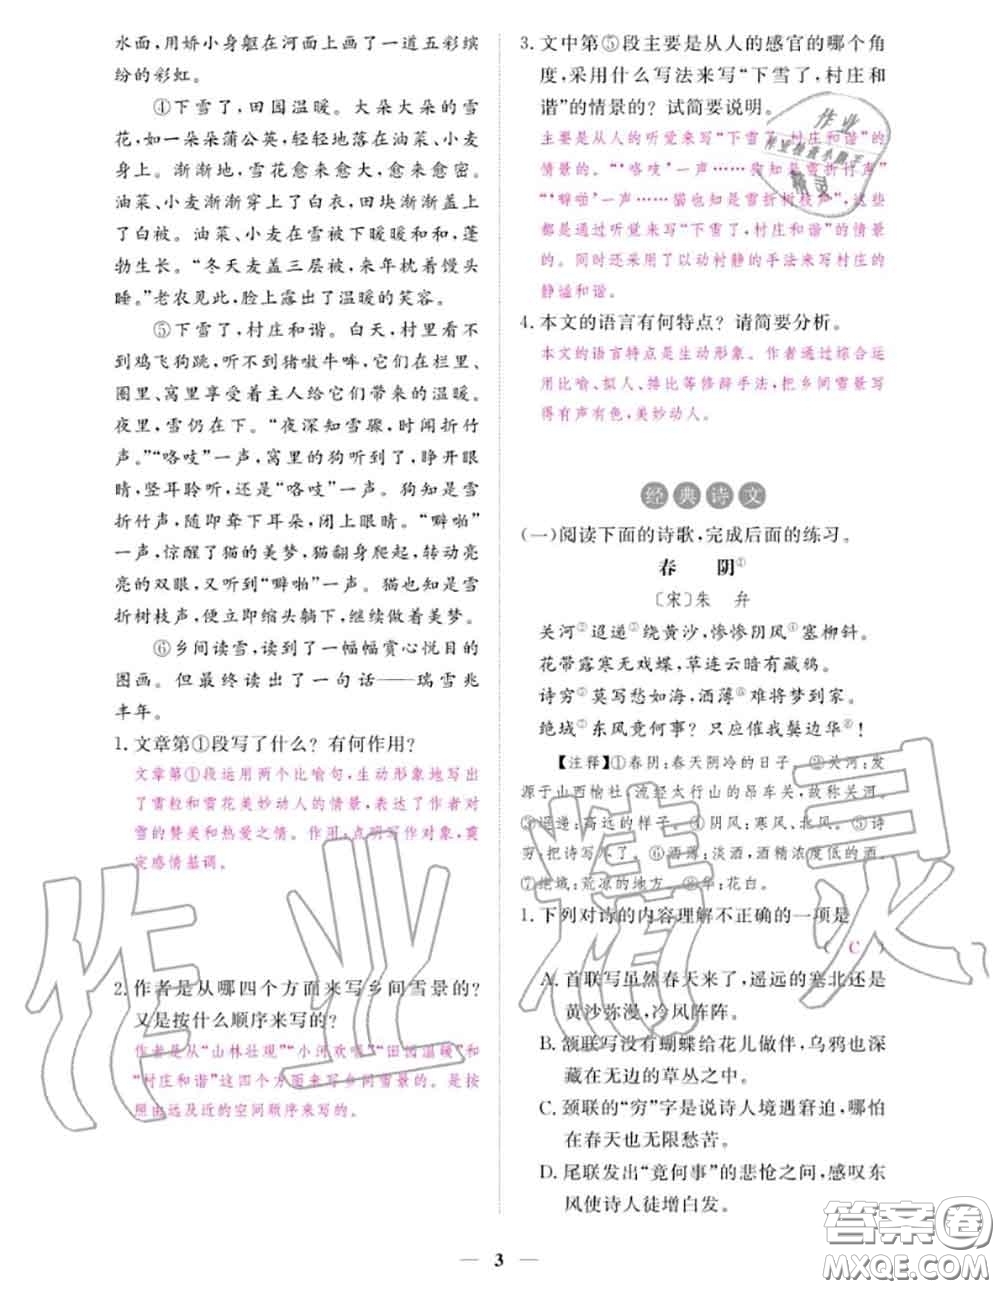 水面,用娇小身躯在河面上画了一道五彩缤
纷的彩虹。
④下雪了,田园温暖。大朵大朵的雪
花,如一朵朵蒲公英,轻轻地落在油菜、小麦
身上。渐渐地,雪花愈来愈大,愈来愈密。
油菜、小麦渐渐穿上了白衣,田块渐渐盖上
了白被。油菜、小麦在雪被下暖暖和和,蓬
勃生长。“冬天麦盖三层被,来年枕着馒头
睡。”老农见此,脸上露出了温暖的笑容。
⑤下雪了,村庄和谐。白天,村里看不
到鸡飞狗跳,听不到猪嗷牛哞,它们在栏里、
圈里、窝里享受着主人给它们带来的温暖。
夜里,雪仍在下。“夜深知雪骤,时闻折竹
声。”“咯吱”一声,窝里的狗听到了,睁开眼
睛,竖耳聆听,还是“咯吱”一声。狗知是雪
折竹声,随即耷下耳朵,闭上眼睛。“噼啪”
一声,惊醒了猫的美梦,猫翻身爬起,转动亮
亮的双眼,又听到“噼啪”一声。猫也知是雪
折树枝声,便立即缩头躺下,继续做着美梦。
⑥乡间读雪,读到了一幅幅赏心悦目的
图画。但最终读出了一句话——瑞雪兆
丰年。
1. 文章第①段写了什么?有何作用?
文章第①段运用两个比喻句,生动形象地写出
了雪粒和雪花美妙动人的情景,表达了作者对
雪的赞美和热爱之情。作用:点明写作对象,奠
定感情基调。
2. 作者是从哪四个方面来写乡间雪景的?
又是按什么顺序来写的?
作者是从“山林壮观”“小河欢唱”“田园温暖”和
“村庄和谐”这四个方面来写乡间雪景的。是按
照由远及近的空间顺序来写的。
3. 文中第⑤段主要是从人的感官的哪个角
度,采用什么写法来写“下雪了,村庄和
谐”的情景的?试简要说明。
主要是从人的听觉来写“下雪了,村庄和谐”的
情景的。“‘咯吱’一声……狗知是雪折竹声”
“‘噼啪’一声……猫也知是雪折树枝声”,这些
都是通过听觉来写“下雪了,村庄和谐”的情景
的。同时还采用了以动衬静的手法来写村庄的
静谧和谐。
4. 本文的语言有何特点?请简要分析。
本文的语言特点是生动形象。作者通过综合运
用比喻、拟人、排比等修辞手法,把乡间雪景写
得有声有色,美妙动人。
经典诗文
(一)阅读下面的诗歌,完成后面的练习。
春 阴①
〔宋〕朱 弁
关河②迢递③绕黄沙,惨惨阴风④塞柳斜。
花带露寒无戏蝶,草连云暗有藏鸦。
诗穷⑤莫写愁如海,酒薄⑥难将梦到家。
绝域⑦东风竟何事?只应催我鬓边华⑧!
【注释】①春阴:春天阴冷的日子。②关河:发
源于山西榆社,流经太行山的昂车关,故称关河。
③迢递:高远的样子。④阴风:寒风、北风。⑤诗
穷:把诗写尽了。⑥酒薄:淡酒,酒精浓度低的酒。
⑦绝域:荒凉的地方。⑧华:花白。
1. 下列对诗的内容理解不正确的一项是
C )
A. 首联写虽然春天来了,遥远的塞北还是
黄沙弥漫,冷风阵阵。
B. 颔联写没有蝴蝶给花儿做伴,乌鸦也深
藏在无边的草丛之中。
C. 颈联的“穷”字是说诗人境遇窘迫,哪怕
在春天也无限愁苦。
D. 尾联发出“竟何事”的悲怆之问,感叹东
风使诗人徒增白发。
3
作业精灵
作业
精灵
答案圈
MXQE.COM